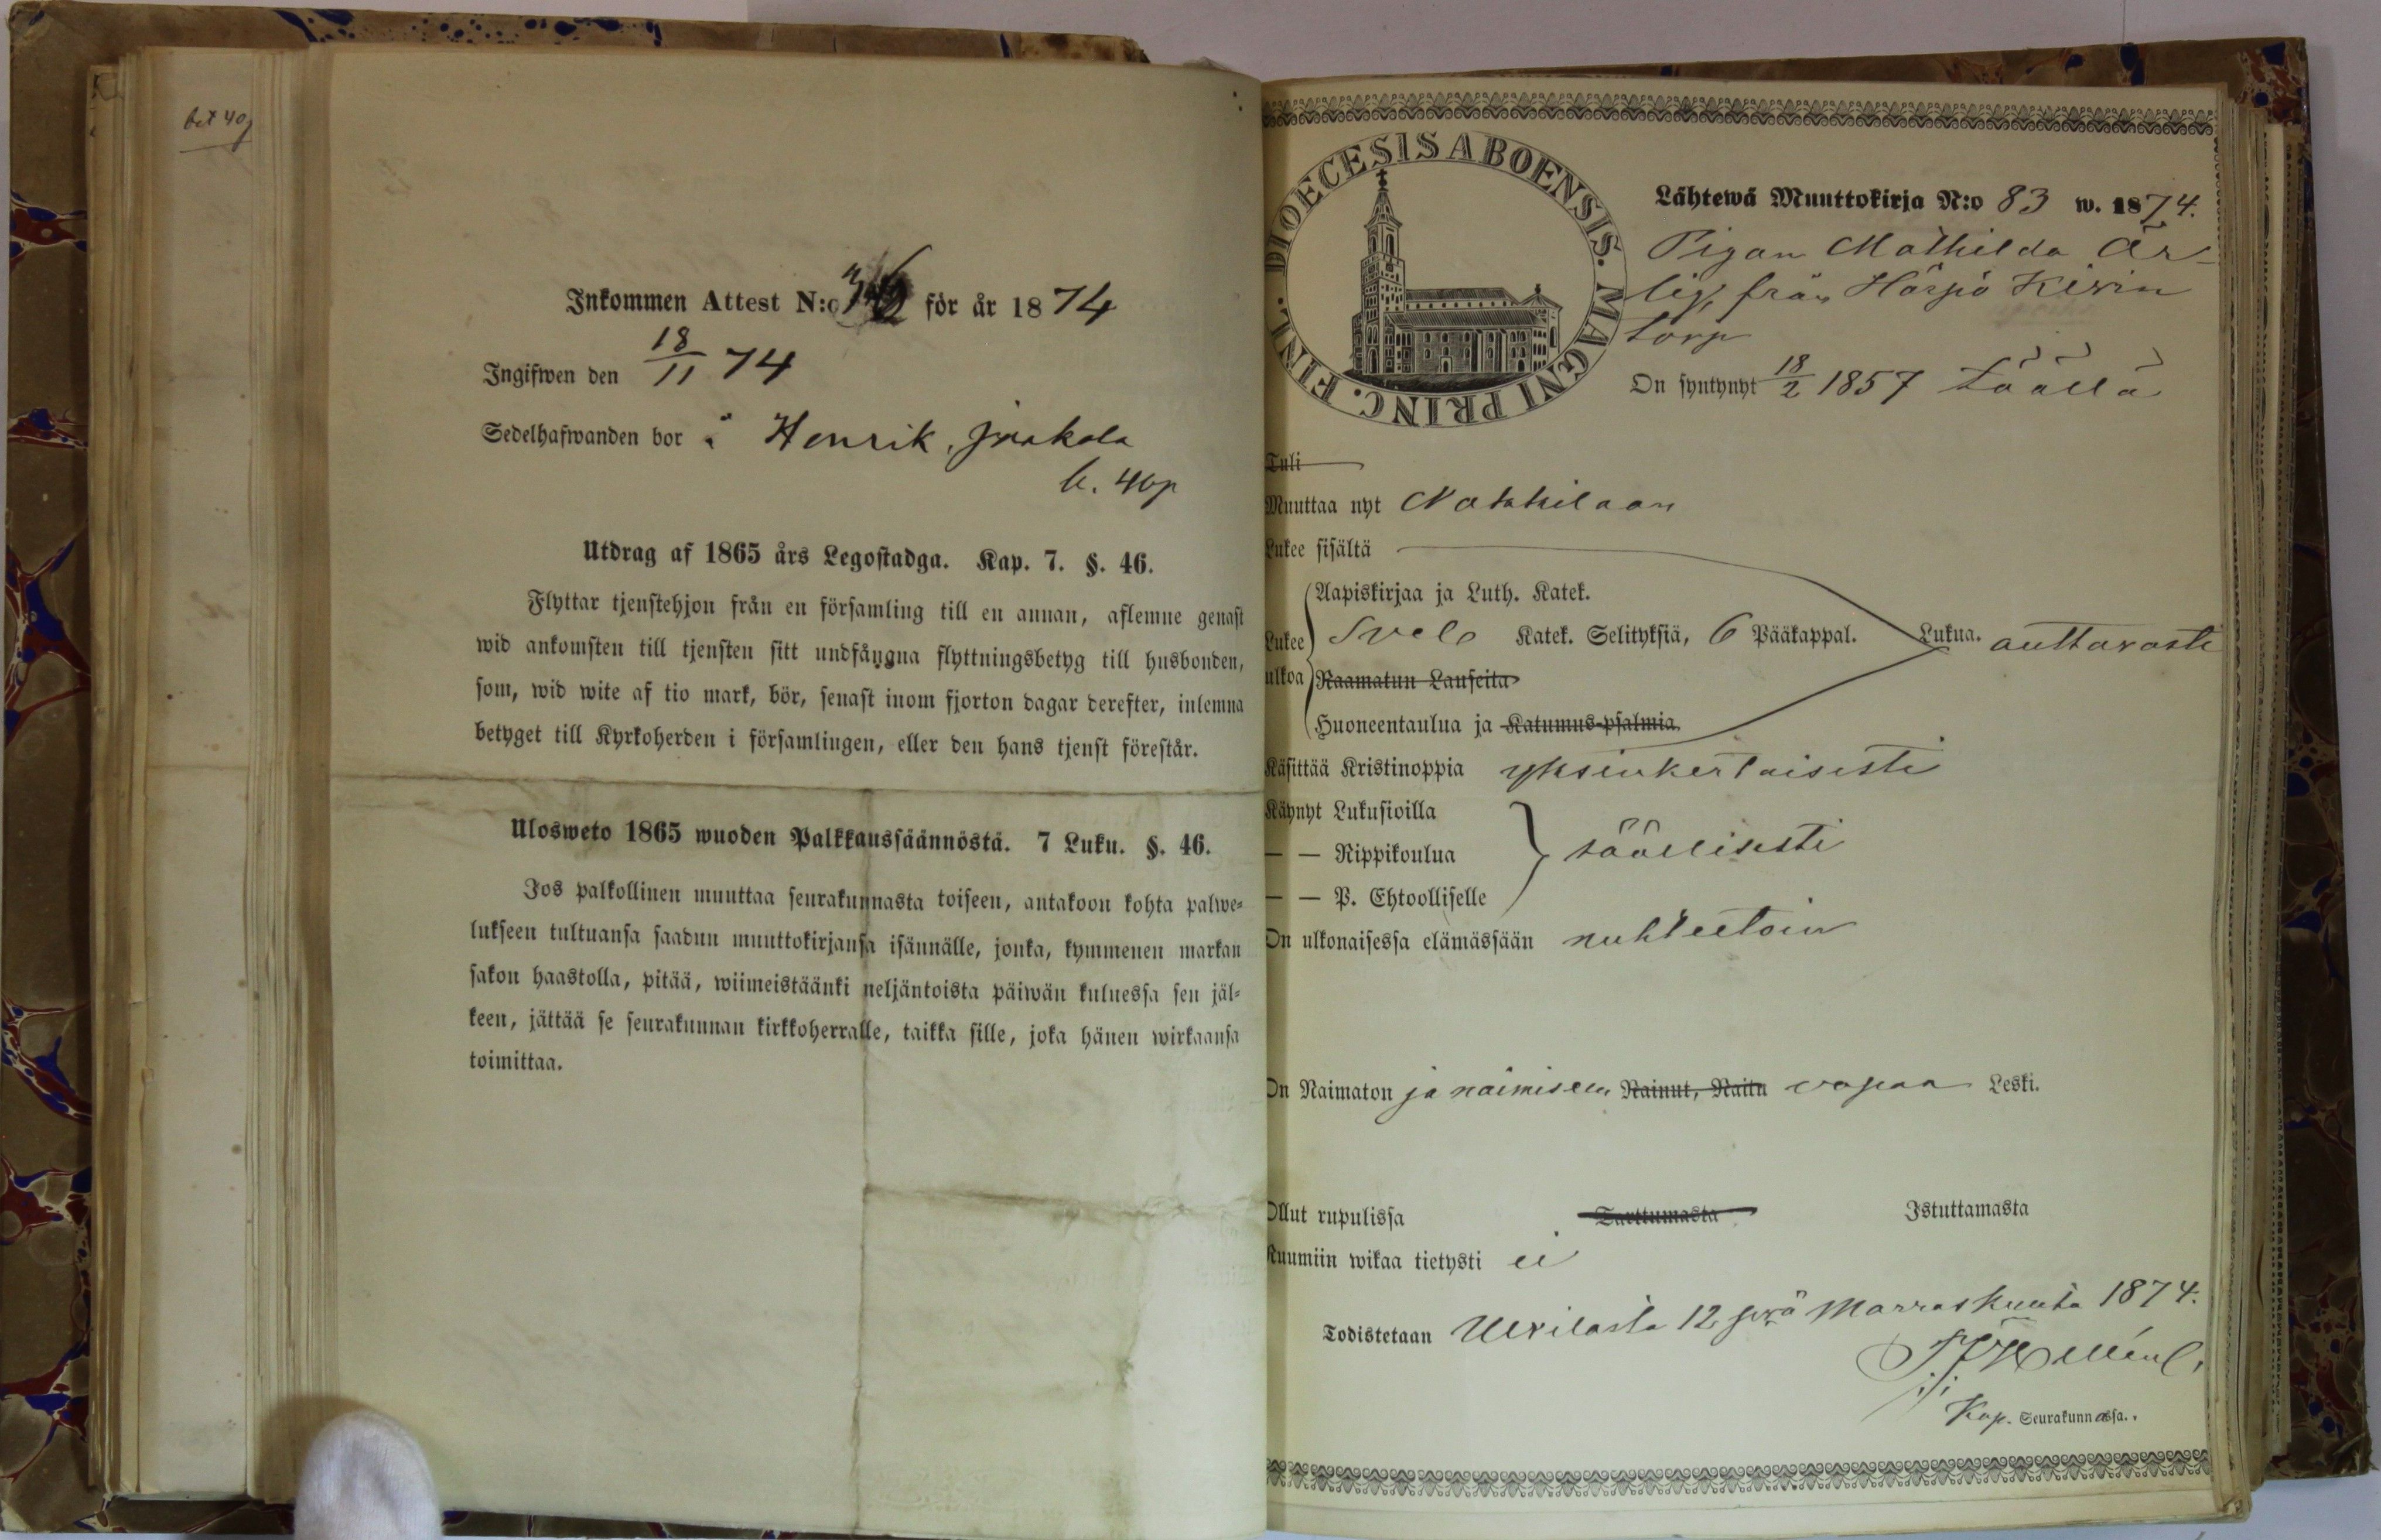 bet 40p
Inkommen Attest N:o för år 1874
Ingifwen den 18/11 74
Sedelhafwanden bor å Henrik, Jaakola
b. 40p
Utdrag af 1865 års Legostadga. Kap. 7. §. 46.
Flyttar tjenstehjon från en församling till en annan, aflemne genast
wid ankomsten till tjensten sitt undfångna flyttningsbetyg till husbonden,
som, wid wite af tio mark, bör, senast inom fjorton dagar derefter, inlemna
betyget till Kyrkoherden i församlingen, eller den hans tjenst förestår.
Ulosweto 1865 wuoden Palkkaussäännöstä. 7 Luku. §. 46.
Jos palkollinen muuttaa seurakunnasta toiseen, antakoon kohta palwe=
lukseen tultuansa saadun muuttokirjansa isännälle, jonka, kymmenen markan
sakon haastolla, pitää, wiimeistäänki neljäntoista päiwän kuluessa sen jäl=
keen, jättää se seurakunnan kirkkoherralle, taikka sille, joka hänen wirkaansa
toimittaa.
DIOECESIS ABOENSIS. MAGNI PRINC. FINL.
Lähtewä Muuttokirja N:o 83 w. 1874.
Pigan Mathilda Är-
lig, från Härpö Kivin
torp
On syntynyt 18/2 1857 täällä
Tuli
Muuttaa nyt Nakkilaan
Lukee sisältä
Aapiskirjaa ja Luth. Katek.
Lukee ulkoa Svel. Katek. Selityksiä, 6 Pääkappal. Lukua. auttavasti
Raamatun Lauseita
Huoneentaulua ja Katumus-psalmia
Käsittää Kristinoppia yksinkertaisesti
Käynyt Lukusioilla
— — Rippikoulua säällisesti
— — P. Ehtoolliselle
On ulkonaisessa elämässään nuhteetoin
On Naimaton ja naimiseen Nainut, Naitu vapaa Leski.
Ollut rupulissa Tarttumasta Istuttamasta
Ruumiin wikaa tietysti ei
Todistetaan Ulvilasta 12 pvä Marraskuuta 1874.
Kap. Seurakunnassa.